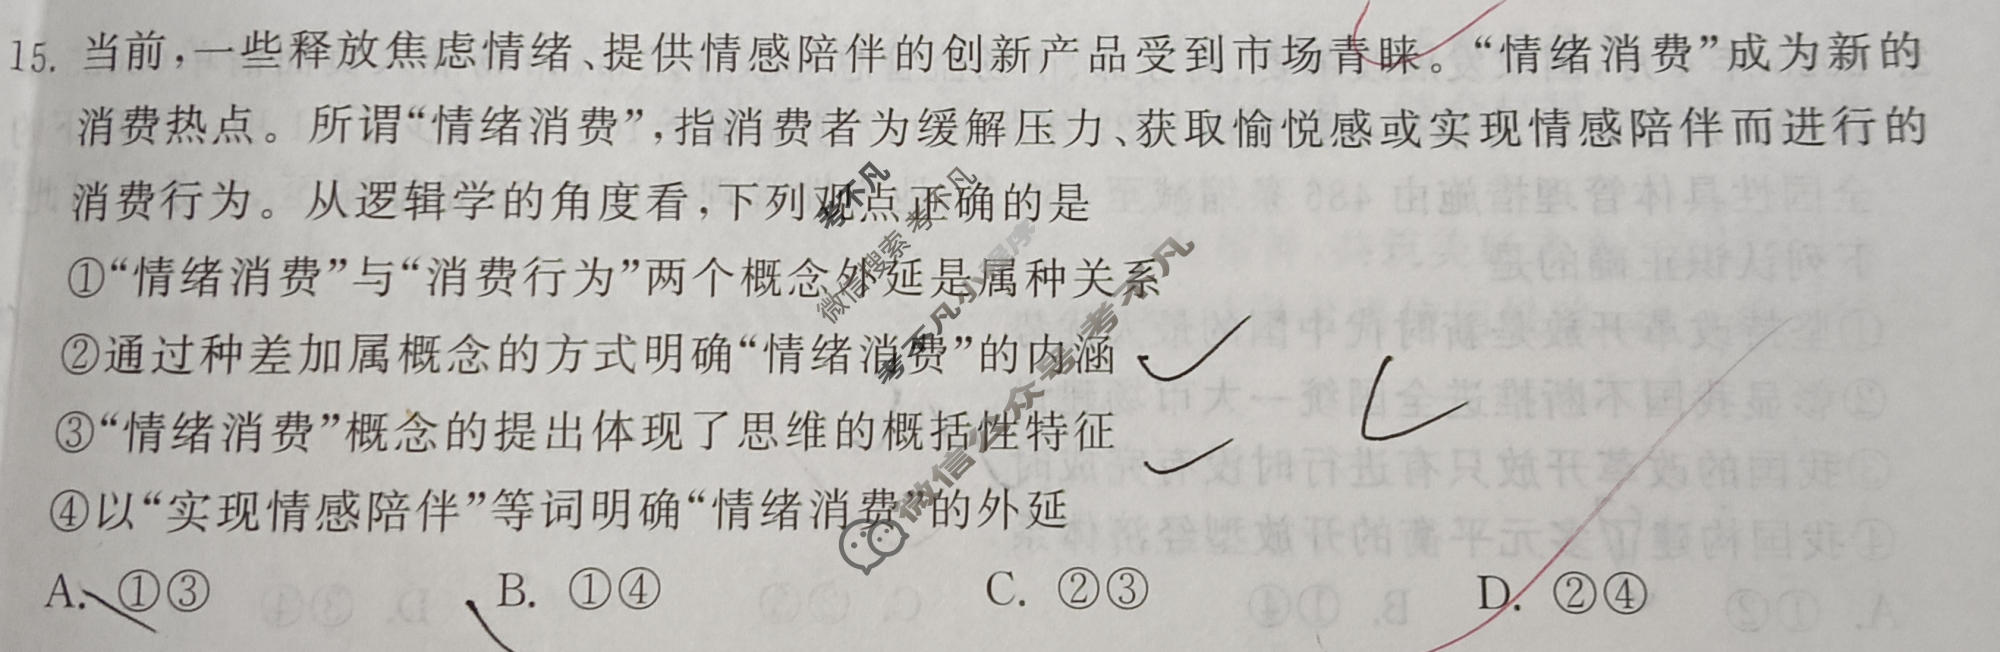 15. 当前,一些释放焦虑情绪、提供情感陪伴的创新产品受到市场青睐。“情绪消费”成为新的
消费热点。所谓“情绪消费”,指消费者为缓解压力、获取愉悦感或实现情感陪伴而进行的
消费行为。从逻辑学的角度看,下列观点正确的是
①“情绪消费”与“消费行为”两个概念外延是属种关系
②通过种差加属概念的方式明确“情绪消费”的内涵
③“情绪消费”概念的提出体现了思维的概括性特征
④以“实现情感陪伴”等词明确“情绪消费”的外延
A. ①③ B. ①④ C. ②③ D. ②④
考不凡
微信搜索 考不凡
考不凡小程序
微信公众号 考不凡